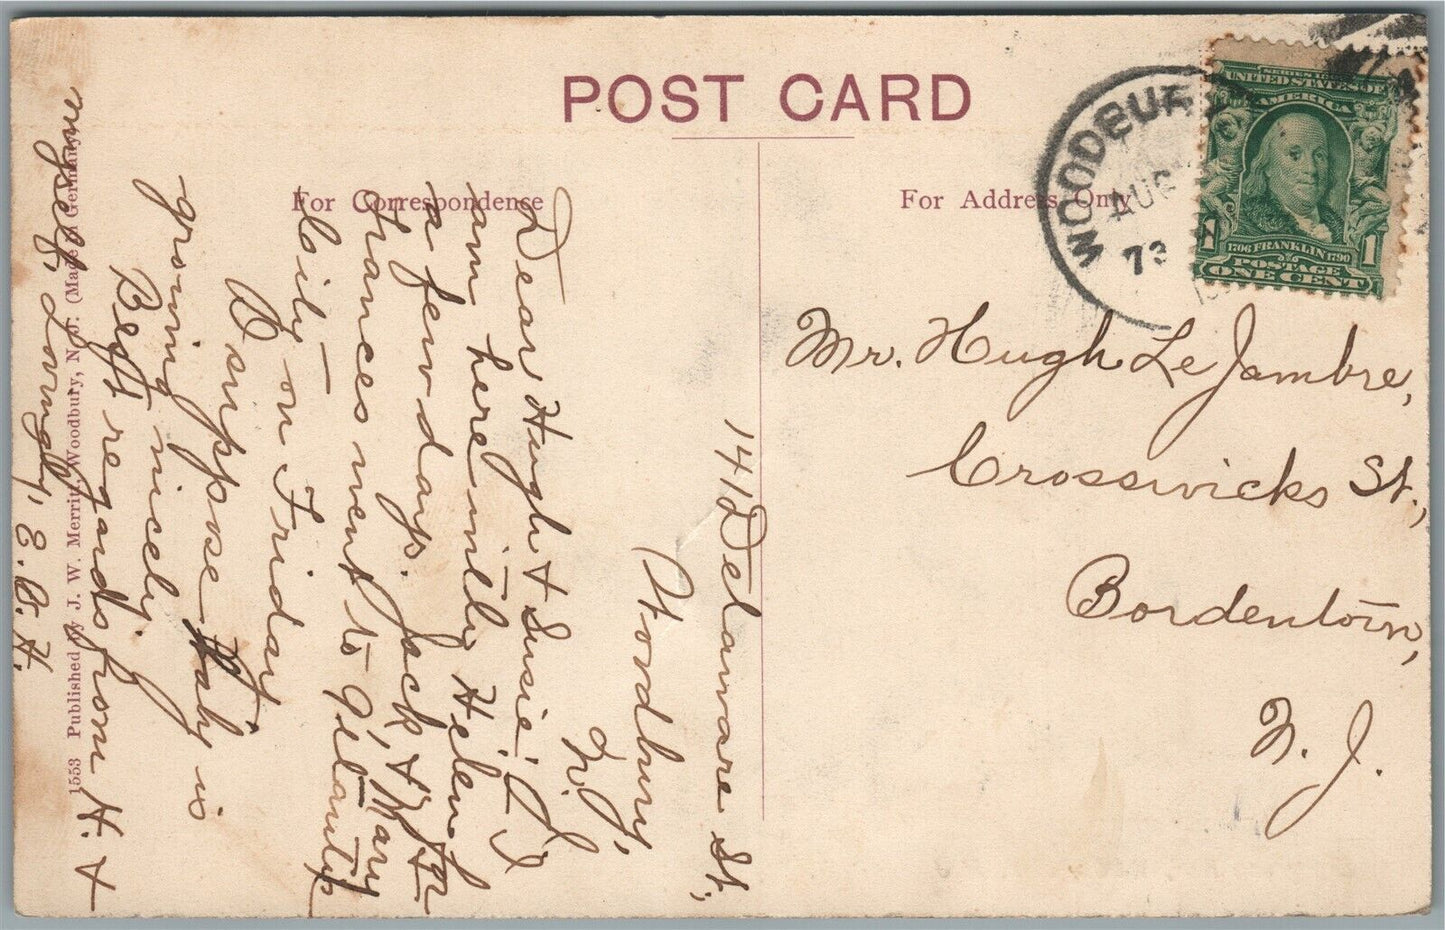 POST CARD
For Correspondence
For Address Only
WOODBURY
AUG
73
SERIES 1902
UNITED STATES OF
AMERICA
1706 FRANKLIN 1790
POSTAGE
1 ONE CENT 1
Mr. Hugh LeJambre,
Crosswicks St.,
Bordentown,
N. J.
141 Delaware St.,
Woodbury,
N. J.
Dear Hugh & Susie! I
am here with Helen for
a few days. Jack &
Frances went to Atlantic
City on Friday.
I suppose Baby is
growing nicely.
Best regards from H. &
myself, Lovingly, E. B. H.
1553 Published by J. W. Merritt, Woodbury, N. J. (Made in Germany)